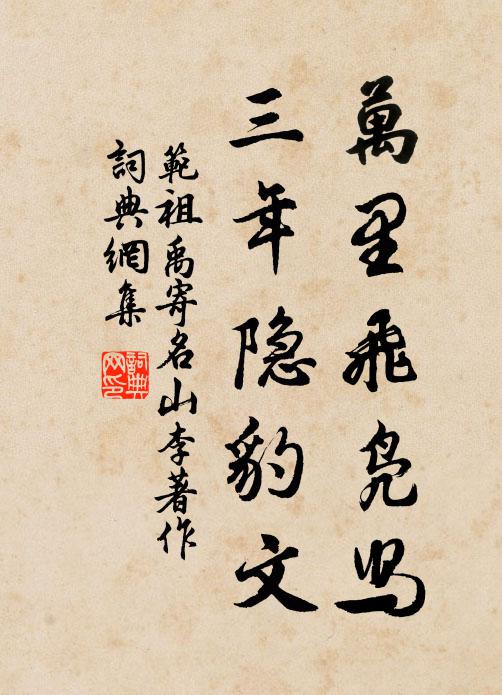 萬里飛凫舄
三年隐豹文
範祖禹寄名山李著作
詞典網集
詞典
网印